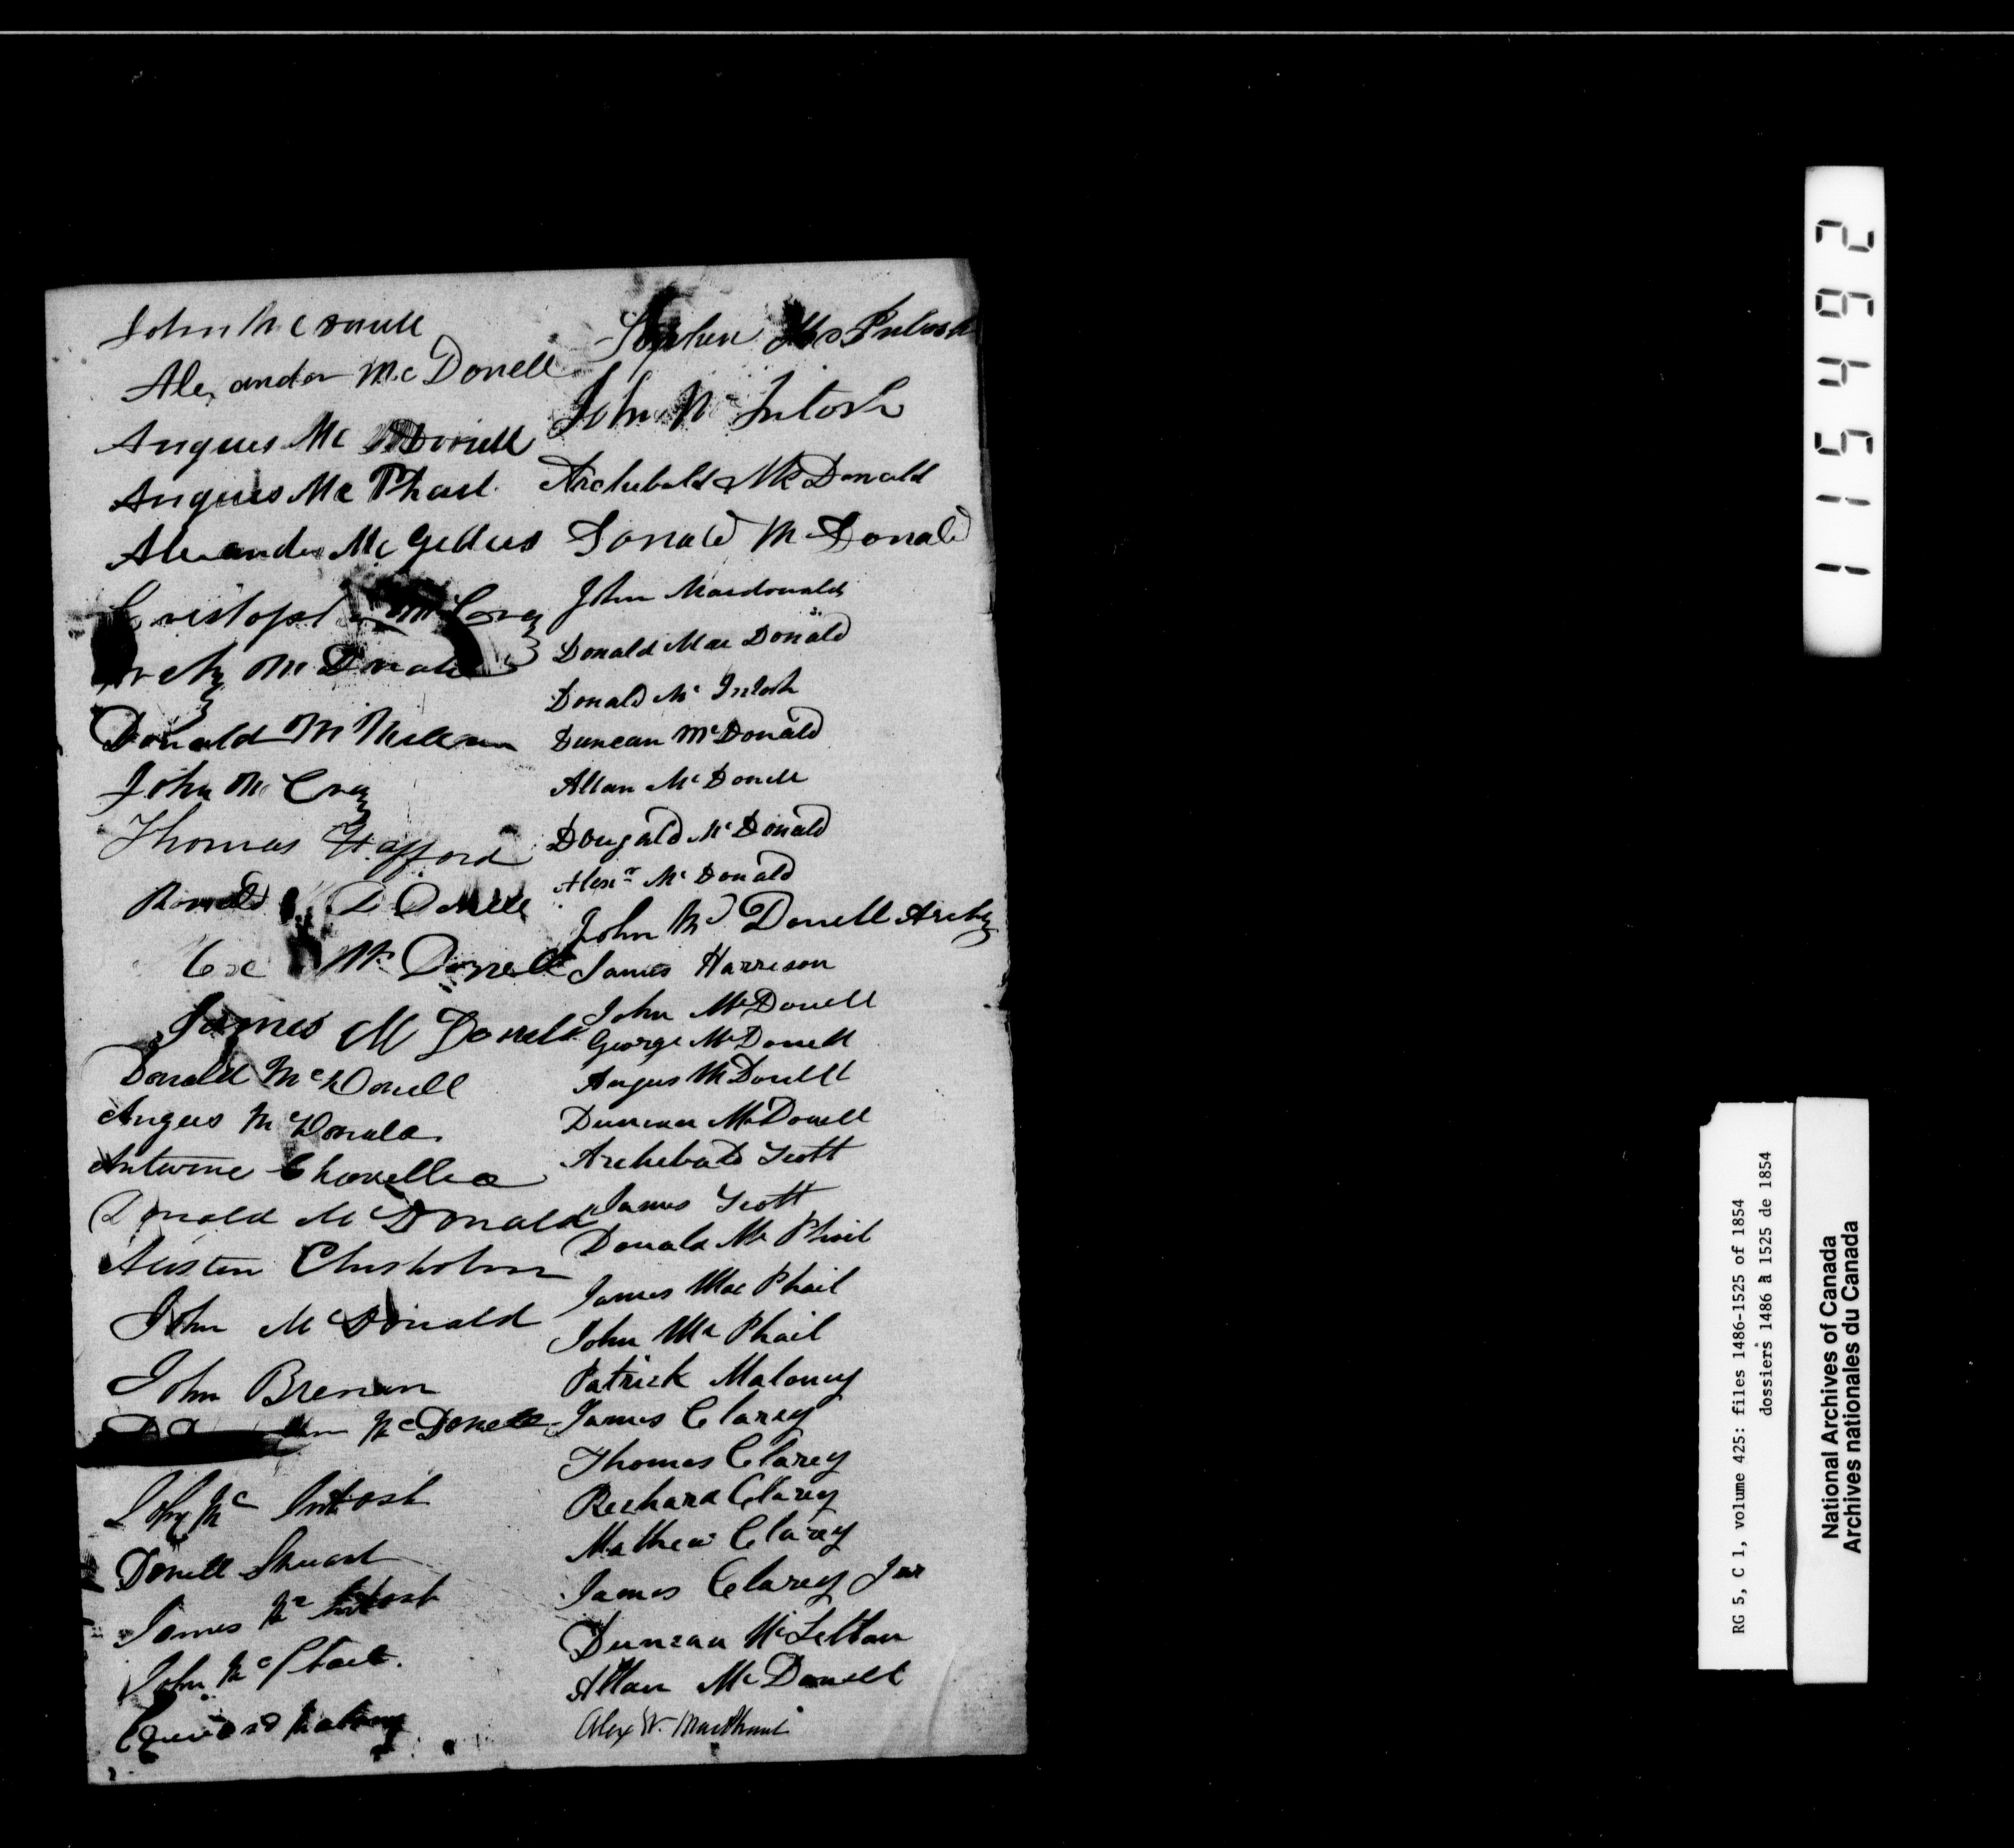 John McDonell
Alexander McDonell
Angus Mc Donell
Angus Mc Phail
Alexander Mc Gillies
Cristopher McCray
Archy McDonald
Donald McMillan
John McCray
Thomas Hafford
Ronald McDonell
McDonell
James McDonell
Donald McDonell
Angus McDonald
Antwine
Donald McDonald
Austen Chisholm
John McDonald
John Brenan
McDonell
John Mc Intosh
Donell Stuart
James Mc Intosh
John McPhail
Edward Malony
Stephen McIntosh
John Mc Intosh
Archibald McDonald
Donald McDonald
John Macdonald
Donald Mac Donald
Donald Mc Intosh
Duncan McDonald
Allan McDonell
Dougald McDonald
Alexr McDonald
John McDonell Archy
James Harrison
John McDonell
George McDonell
Angus McDonell
Duncan McDonell
Archebald Scott
James Scott
Donald Mc Phail
James Mac Phail
John Mc Phail
Patrick Maloney
James Clarey
Thomas Clarey
Richard Clarey
Mathew Clarey
James Clarey Jnr
Duncan McLellan
Allan McDonell
Alex W.
1115492
RG 5, C 1, volume 425: files 1486-1525 of 1854
dossiers 1486 à 1525 de 1854
National Archives of Canada
Archives nationales du Canada